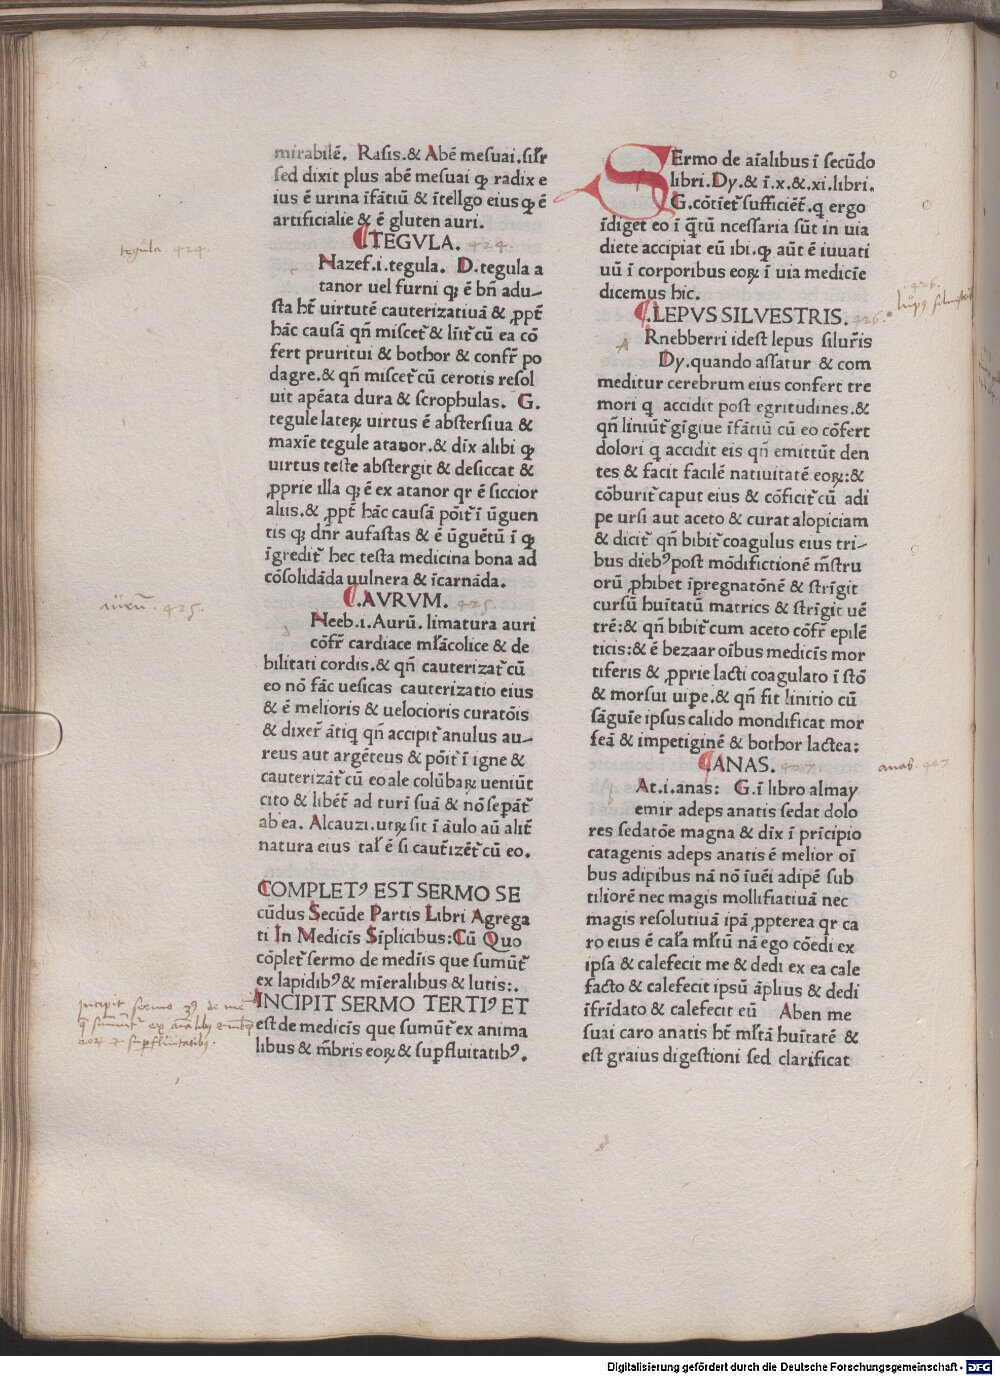 mirabilē. Rasis.& Abē mesuai.silr̄
sed dixit plus abē mesuai ꝙ radix e
ius ē urina īfātiū & ītellgo eius ꝙ ē
artificialie & ē gluten auri.
¶TEGVLA. 424.
Nazef.i.tegula. D.tegula a
tanor uel furni q; ē bn̄ adu-
sta ht̄ uirtutē cauterizatiuā & ꝓpt̄
hāc causā qn̄ miscet̄ & līit̄ cū ea cō
fert pruritui & bothor & confr̄ po
dagre.& qn̄ miscet̄ cū cerotis resol
uit apēata dura & scrophulas. G.
tegule lateꝝ uirtus ē abstersiua &
maxīe tegule atanor.& dīx alibi ꝙ
uirtus teste abstergit & desiccat &
ꝓprie illa q; ē ex atanor qr ē siccior
aliis.& ꝓpt̄ hāc causā pōit̄ ī ūguen
tis q; dn̄r aufastas & ē ūguētū ī ꝙ
īgredit̄ hec testa medicina bona ad
cōsolidāda uulnera & īcarnāda.
¶.AVRVM. 425.
Neeb.i.Aurū. limatura auri
cōfr̄ cardiace młācolice & de
bilitati cordis.& qn̄ cauterizat̄ cū
eo nō fāc uesicas cauterizatio eius
& ē melioris & uelocioris curatōis
& dixer̄ ātiq qn̄ accipit̄ anulus au-
reus aut argēteus & pōit̄ ī igne &
cauterizāt̄ cū eo ale colūbaꝝ ueniūt
cito & libēt̄ ad turī suā & nō sepāt̄
ab ea. Alcauzi.utꝝ sit ī āulo aū alit̄
natura eius tał ē si caut̄izēt̄ cū eo.
COMPLETꝰ EST SERMO SE
cūdus Secūde Partis Libri Agrega
ti In Medicīs Sīplicibus:Cū Quo
cōplet̄ sermo de mediīs que sumūt̄
ex lapidibꝰ & mīeralibus & lutis:.
INCIPIT SERMO TERTIꝰ ET
est de medicīs que sumūt̄ ex anima
libus & m̄bris eoꝝ & supfluitatibꝰ.
SErmo de aīalibus ī secūdo
libri.Dy.& ī.x.& xi.libri.
G.cōtiet̄ sufficiēt̄.q ergo
īdiget eo ī q̄tū ncessaria sūt in uia
diete accipiat eū ibi.ꝙ aūt ē iuuati
uū ī corporibus eoꝝ ī uia medicīe
dicemus hic.
¶.LEPVS SILVESTRIS. 426.
Rnebberri idest lepus silur̄is
Dy.quando assatur & com
meditur cerebrum eius confert tre
mori q accidit post egritudines.&
qn̄ liniūt̄ gīgiue īfātiū cū eo cōfert
dolori q accidit eis qn̄ emittūt den
tes & facit facilē natiuitatē eoꝝ:&
cōburit̄ caput eius & cōficit̄ cū adi
pe ursi aut aceto & curat alopiciam
& dicit̄ qn̄ bibit̄ coagulus eius tri-
bus diebꝰ post mōdifictionē m̄stru
orū ꝓhibet īpregnatōnē & strīgit
cursū huītatū matrics & strīgit uē
trē:& qn̄ bibit̄ cum aceto cōfr̄ epilē
ticis:& ē bezaar oībus medicīs mor
tiferis & ꝓprie lacti coagulato ī stō
& morsui uipe.& qn̄ fit linitio cū
sāguīe ipsus calido mondificat mor
feā & impetiginē & bothor lactea:
¶ANAS. 427
At.i.anas: G.ī libro almay
emir adeps anatis sedat dolo
res sedatōe magna & dīx ī prīcipio
catagenis adeps anatis ē melior oī
bus adipibus nā nō īuēi adipē sub
tiliorē nec magis mollifiatiuā nec
magis resolutiuā ipā ꝓpterea qr ca
ro eius ē cała młtū nā ego cōedi ex
ipsa & calefecit me & dedi ex ea cale
facto & calefecit ipsū āplius & dedi
īfrīdato & calefecit eū Aben me
suai caro anatis ht̄ młtā huītatē &
est graius digestioni sed clarificat
tegula 424.
aurū. 425.
Incipit sermo 3ꝰ de me
q̄ sumūt̄ ex aīalibꝰ & mēbꝭ
eoꝝ & supfluitatibꝰ.
426.
anas. 427
Digitalisierung gefördert durch die Deutsche Forschungsgemeinschaft - DFG